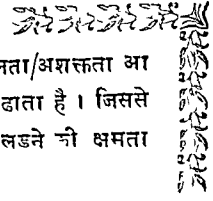 नता/अशक्तता आ
ढाता है । जिससे
लडने की क्षमता